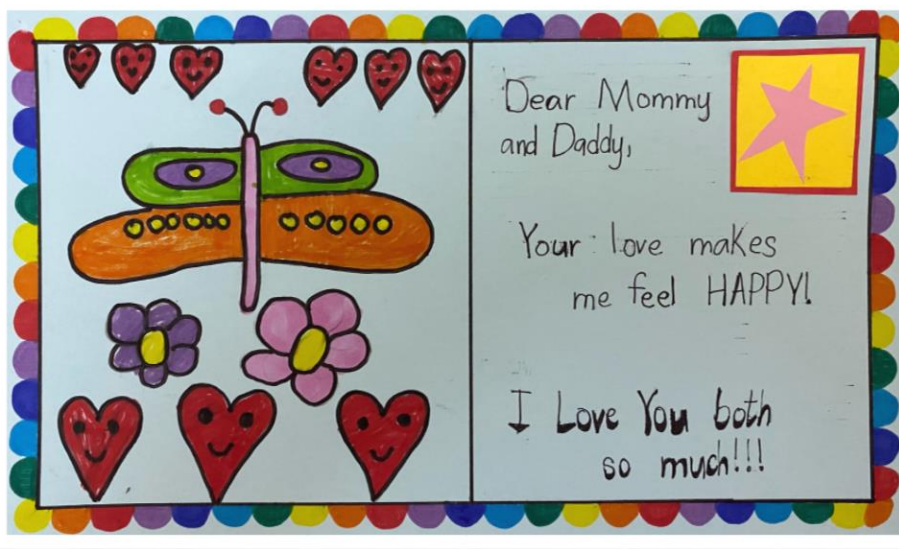 Dear Mommy
and Daddy,
Your love makes
me feel HAPPY!
I Love You both
so much!!!